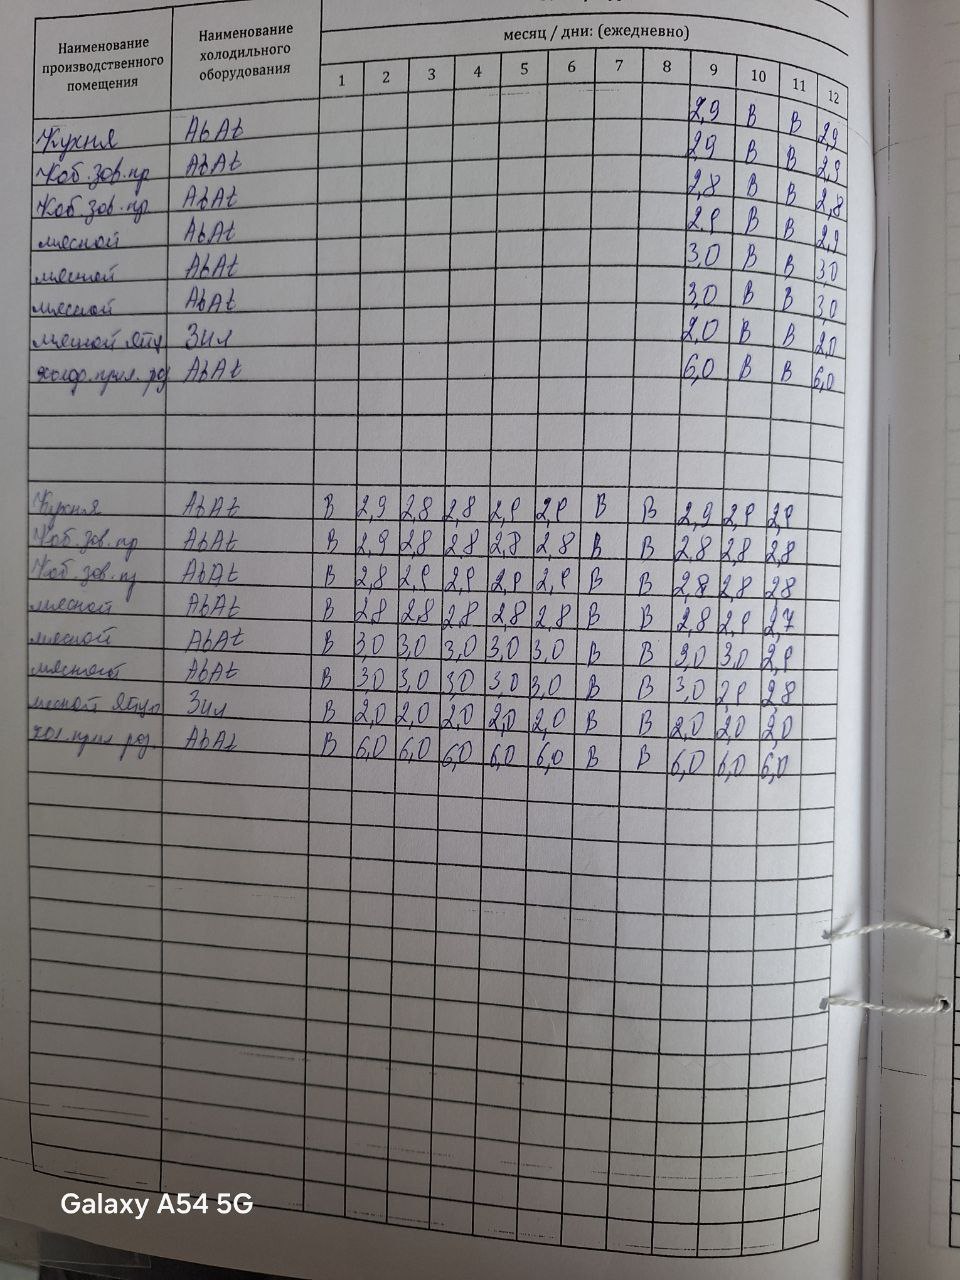 месяц / дни: (ежедневно)
Наименование производственного помещения Наименование холодильного оборудования 1 2 3 4 5 6 7 8 9 10 11 12
Кухня Abat 2,9 В В 2,9
Хоб.зов.пр Abat 2,9 В В 2,9
Хоб.зов.пр Abat 2,8 В В 2,8
мясной Abat 2,9 В В 2,9
мясной Abat 3,0 В В 3,0
мясной Abat 3,0 В В 3,0
мясной Зил 2,0 В В 2,0
Abat 6,0 В В 6,0
Кухня Abat В 2,9 2,8 2,8 2,9 2,9 В В 2,9 2,9 2,9
Хоб.зов.пр Abat В 2,9 2,8 2,8 2,8 2,8 В В 2,8 2,8 2,8
Хоб.зов.пр Abat В 2,8 2,9 2,9 2,9 2,9 В В 2,8 2,8 2,8
мясной Abat В 2,8 2,8 2,8 2,8 2,8 В В 2,8 2,9 2,7
мясной Abat В 3,0 3,0 3,0 3,0 3,0 В В 3,0 3,0 2,9
мясной Abat В 3,0 3,0 3,0 3,0 3,0 В В 3,0 2,9 2,8
мясной Зил В 2,0 2,0 2,0 2,0 2,0 В В 2,0 2,0 2,0
Abat В 6,0 6,0 6,0 6,0 6,0 В В 6,0 6,0 6,0
Galaxy A54 5G